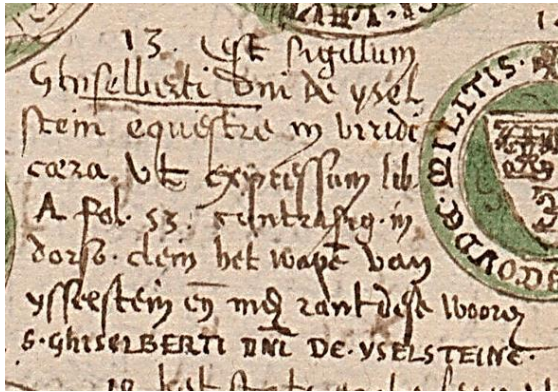 13. est sigillum
Ghiselberti dni de ysel
stein equestre in viridi
cæra. Vt expressum lib.
A fol. 53. contrasig. in
dorso. clein het wapē van
ysselstein eñ med rant dese woord
S. GHISELBERTI DNI DE. YSELSTEINE.
MILITIS. D